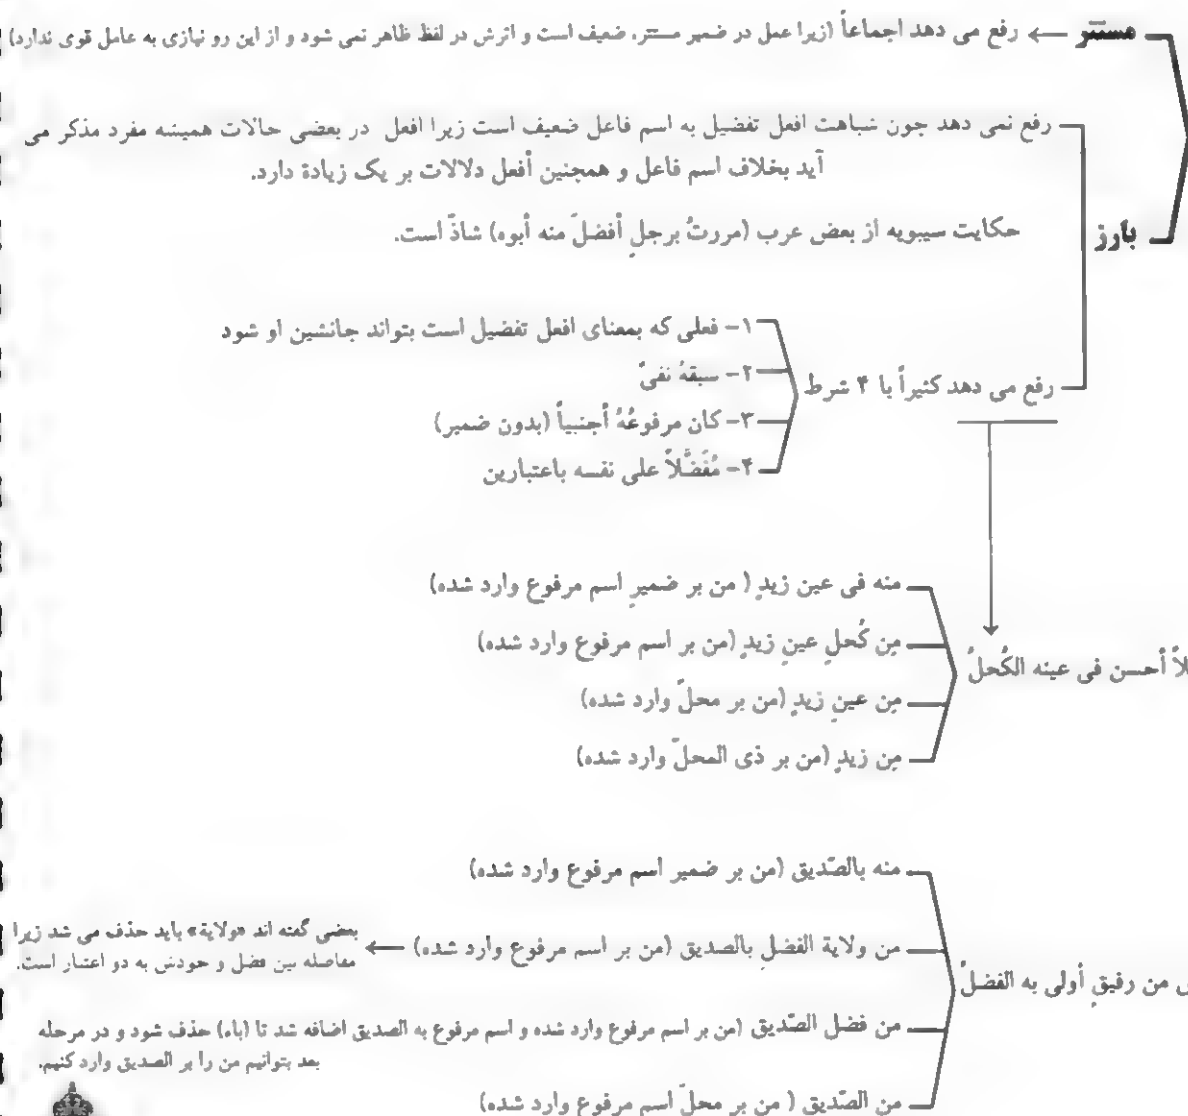 مستتر ← رفع می دهد اجماعاً (زیرا عمل در ضمیر مستتر، ضعیف است و اثرش در لفظ ظاهر نمی شود و از این رو نیازی به عامل قوی ندارد)
رفع نمی دهد چون شباهت افعل تفضیل به اسم فاعل ضعیف است زیرا افعل در بعضی حالات همیشه مفرد مذکر می
آید بخلاف اسم فاعل و همچنین أفعل دلالات بر یک زیادة دارد.
بارز
حکایت سیبویه از بعض عرب (مررتُ برجلٍ أفضلَ منه أبوه) شاذّ است.
رفع می دهد کثیراً با ۴ شرط
۱- فعلی که بمعنای افعل تفضیل است بتواند جانشین او شود
۲- سبقهُ نفیٌ
۳- کان مرفوعُهُ أجنبیاً (بدون ضمیر)
۴- مُفَضَّلاً علی نفسه باعتبارین
أحسن فی عینه الکُحلُ
منه فی عین زیدٍ ( من بر ضمیرِ اسم مرفوع وارد شده)
مِن کُحلِ عینِ زیدٍ (من بر اسم مرفوع وارد شده)
مِن عینِ زیدٍ (من بر محلّ وارد شده)
مِن زیدٍ (من بر ذی المحلّ وارد شده)
من رفیقٍ أولی به الفضلُ
منه بالصّدیق (من بر ضمیر اسم مرفوع وارد شده)
من ولایة الفضلِ بالصدیق (من بر اسم مرفوع وارد شده) ←
بعضی گفته اند «ولایة» باید حذف می شد زیرا
مفاصله بین فضل و خودش به دو اعتبار است.
من فضل الصّدیق (من بر اسم مرفوع وارد شده و اسم مرفوع به الصدیق اضافه شد تا (باء) حذف شود و در مرحله
بعد بتوانیم من را بر الصدیق وارد کنیم.
من الصّدیق ( من بر محلّ اسم مرفوع وارد شده)